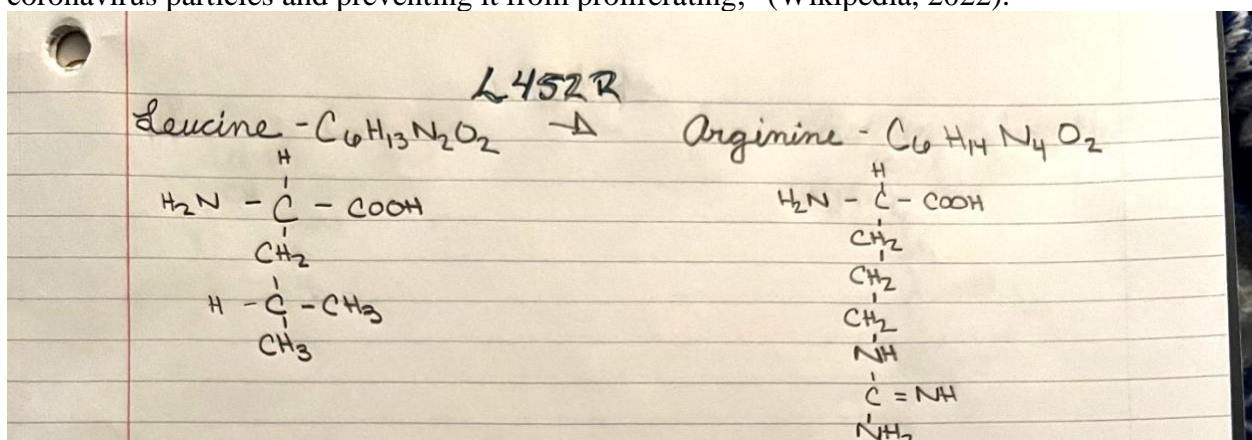 coronavirus particles and preventing it from proliferating," (Wikipedia, 2022).
L452R
Leucine - C6H13N2O2 → Arginine - C6H14N4O2
H H
H2N - C - COOH H2N - C - COOH
CH2 CH2
CH2
H - C - CH3 CH2
CH3 NH
C = NH
NH2